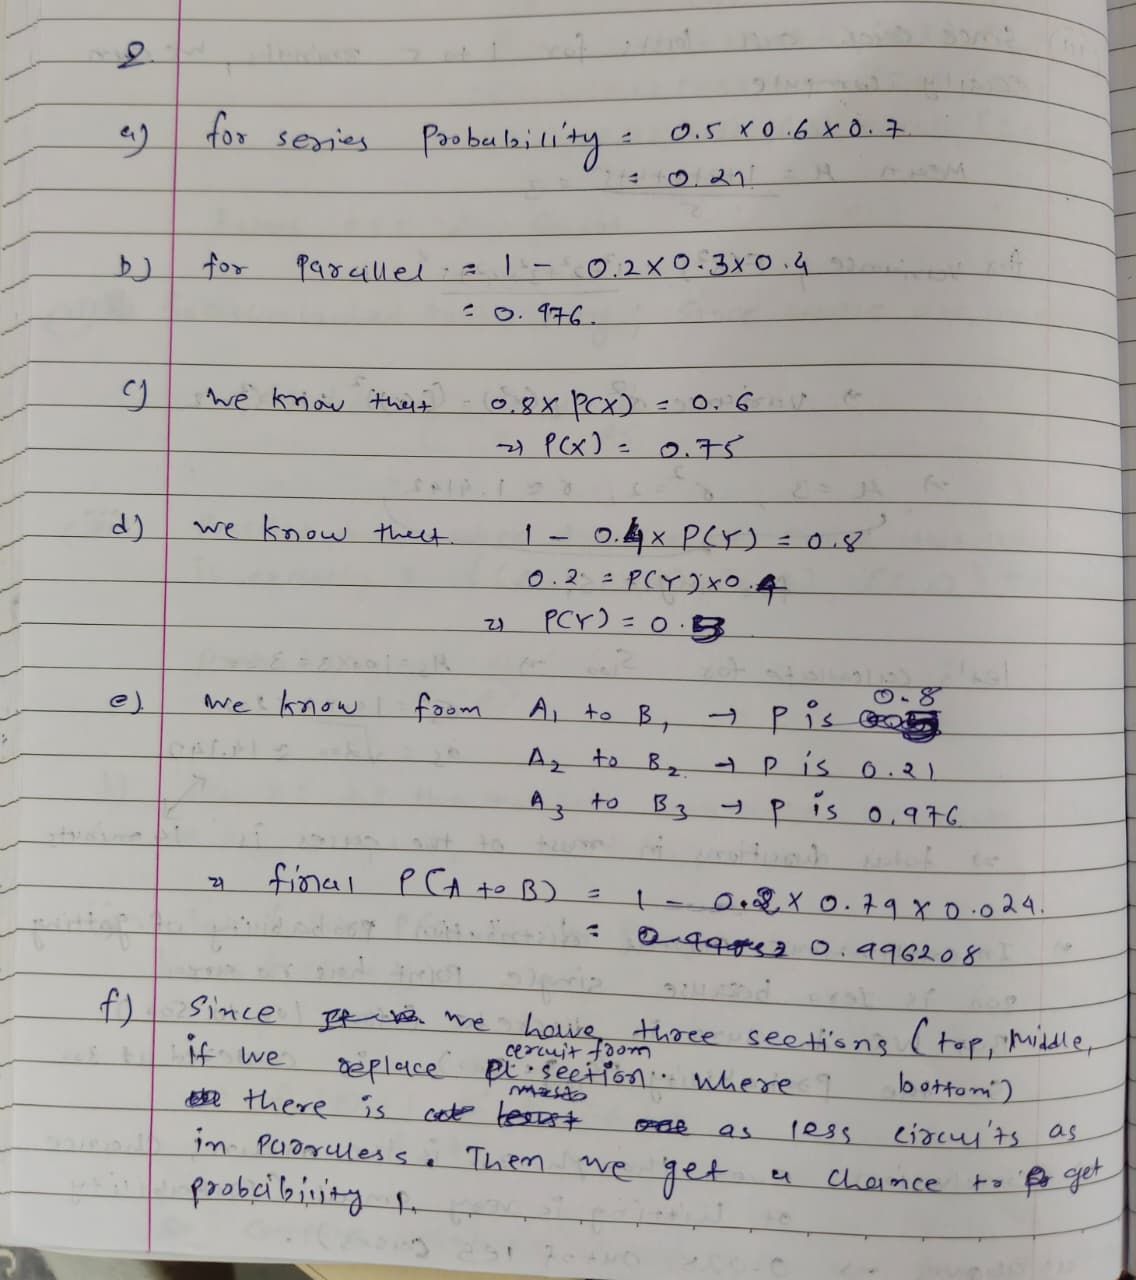 2.
a) for series Probability = 0.5 x 0.6 x 0.7
= 0.21
b) for Parallel = 1 - 0.2 x 0.3 x 0.4
= 0.976.
c) We know that 0.8 x P(X) = 0.6
=> P(X) = 0.75
d) we know that. 1 - 0.4 x P(Y) = 0.8
0.2 = P(Y) x 0.4
=> P(Y) = 0.5
e) We know from A₁ to B₁ → P is 0.8
A₂ to B₂ → P is 0.21
A₃ to B₃ → P is 0.976
=> final P(A to B) = 1 - 0.2 x 0.79 x 0.024.
= 0.996208
f) Since we have three sections (top, middle,
bottom)
if we replace circuit from section where
there is as less circuits as
in Parralless. Then we get a chance to get
probability 1.